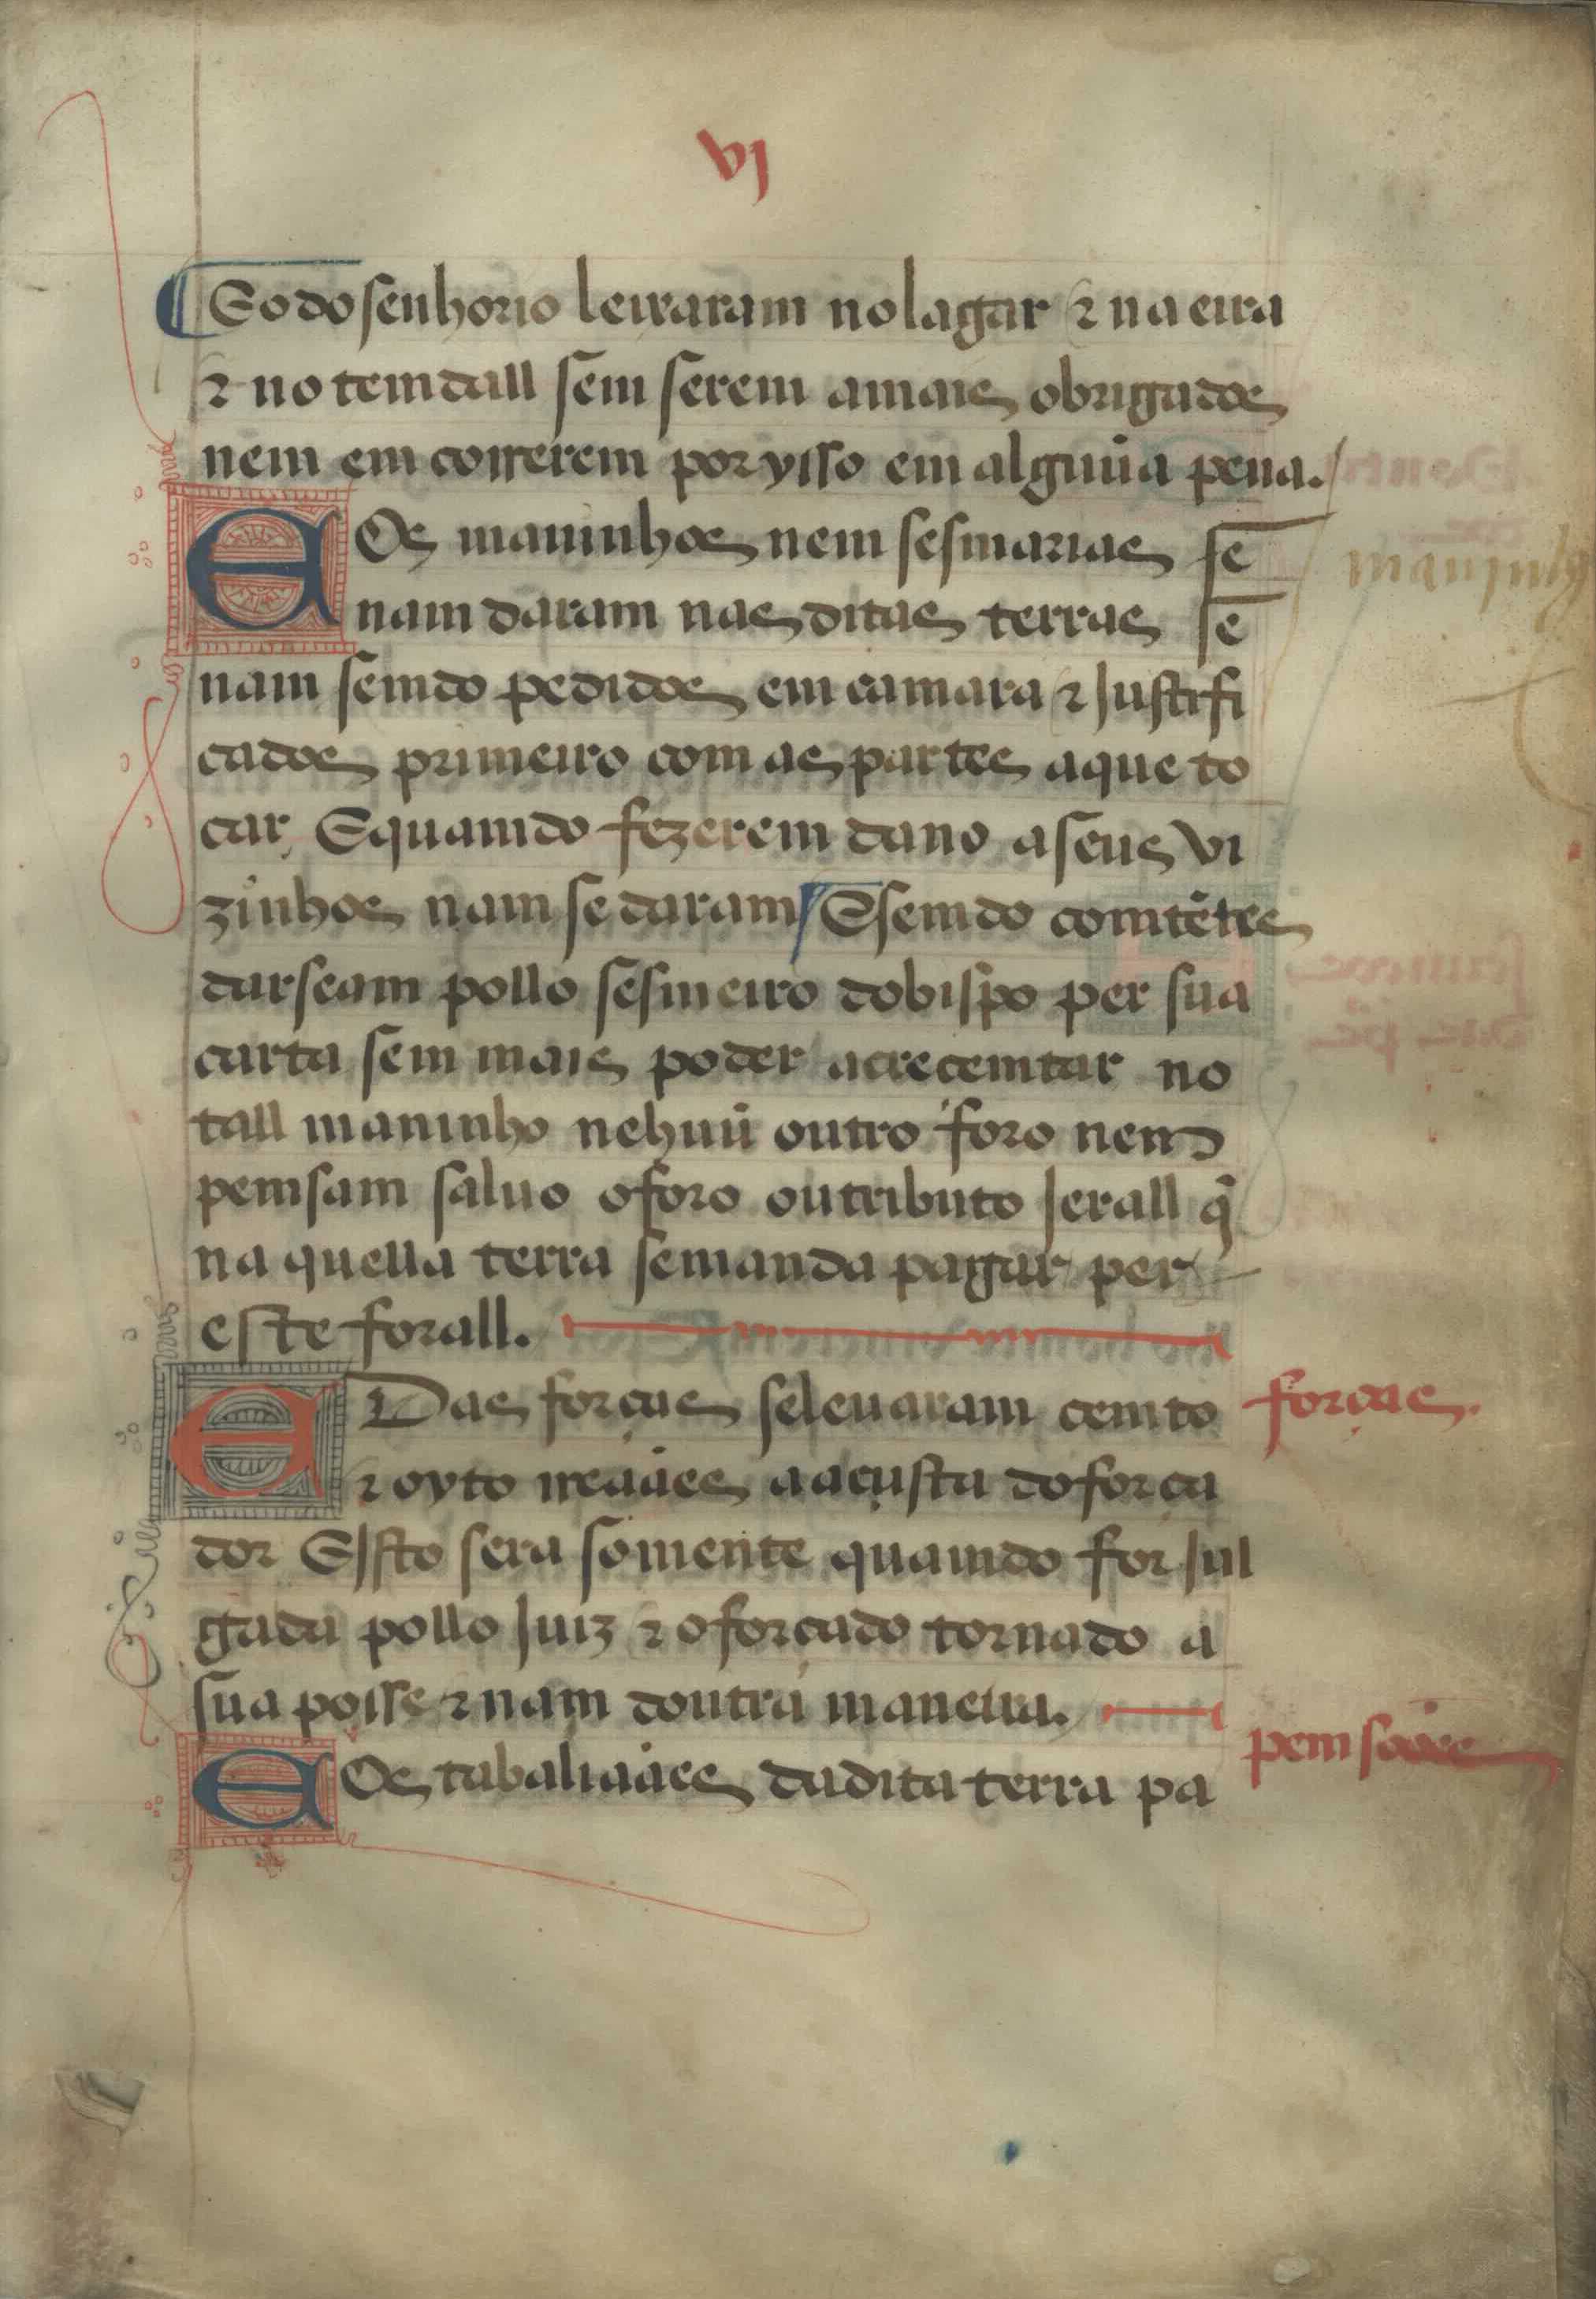 vj
¶ E o do senhorio leixaram no lagar ⁊ na eira
⁊ no temdall sem serem a mais obrigados
nem em correrem por ysso em alguũa pena.
E Os maninhos nem sesmarias se
nam daram nas ditas terras sē
nam semdo pedidos em camara ⁊ Justifi
cados primeiro com as partes a que to
car. E quamdo fezerem dano a seus vi
zinhos nam se daram / E semdo comtētes
darseam pollo sesmeiro dobispo per sua
carta sem mais poder acrecemtar no
tall maninho nehuũ outro foro nem
pemsam saluo o foro ou tributo Jerall q̃
na quella terra se manda pagar per
este forall.
E Das forças se leuaram cemto
⁊ oyto rreaães a a custa do força
dor E Jsto sera somente quamdo for Jul
gada pollo Juiz ⁊ o forçado tornado a
sua posse ⁊ nam doutra maneira.
E Os tabaliaães da dita terra pa
maninhos
forças.
pemsoões